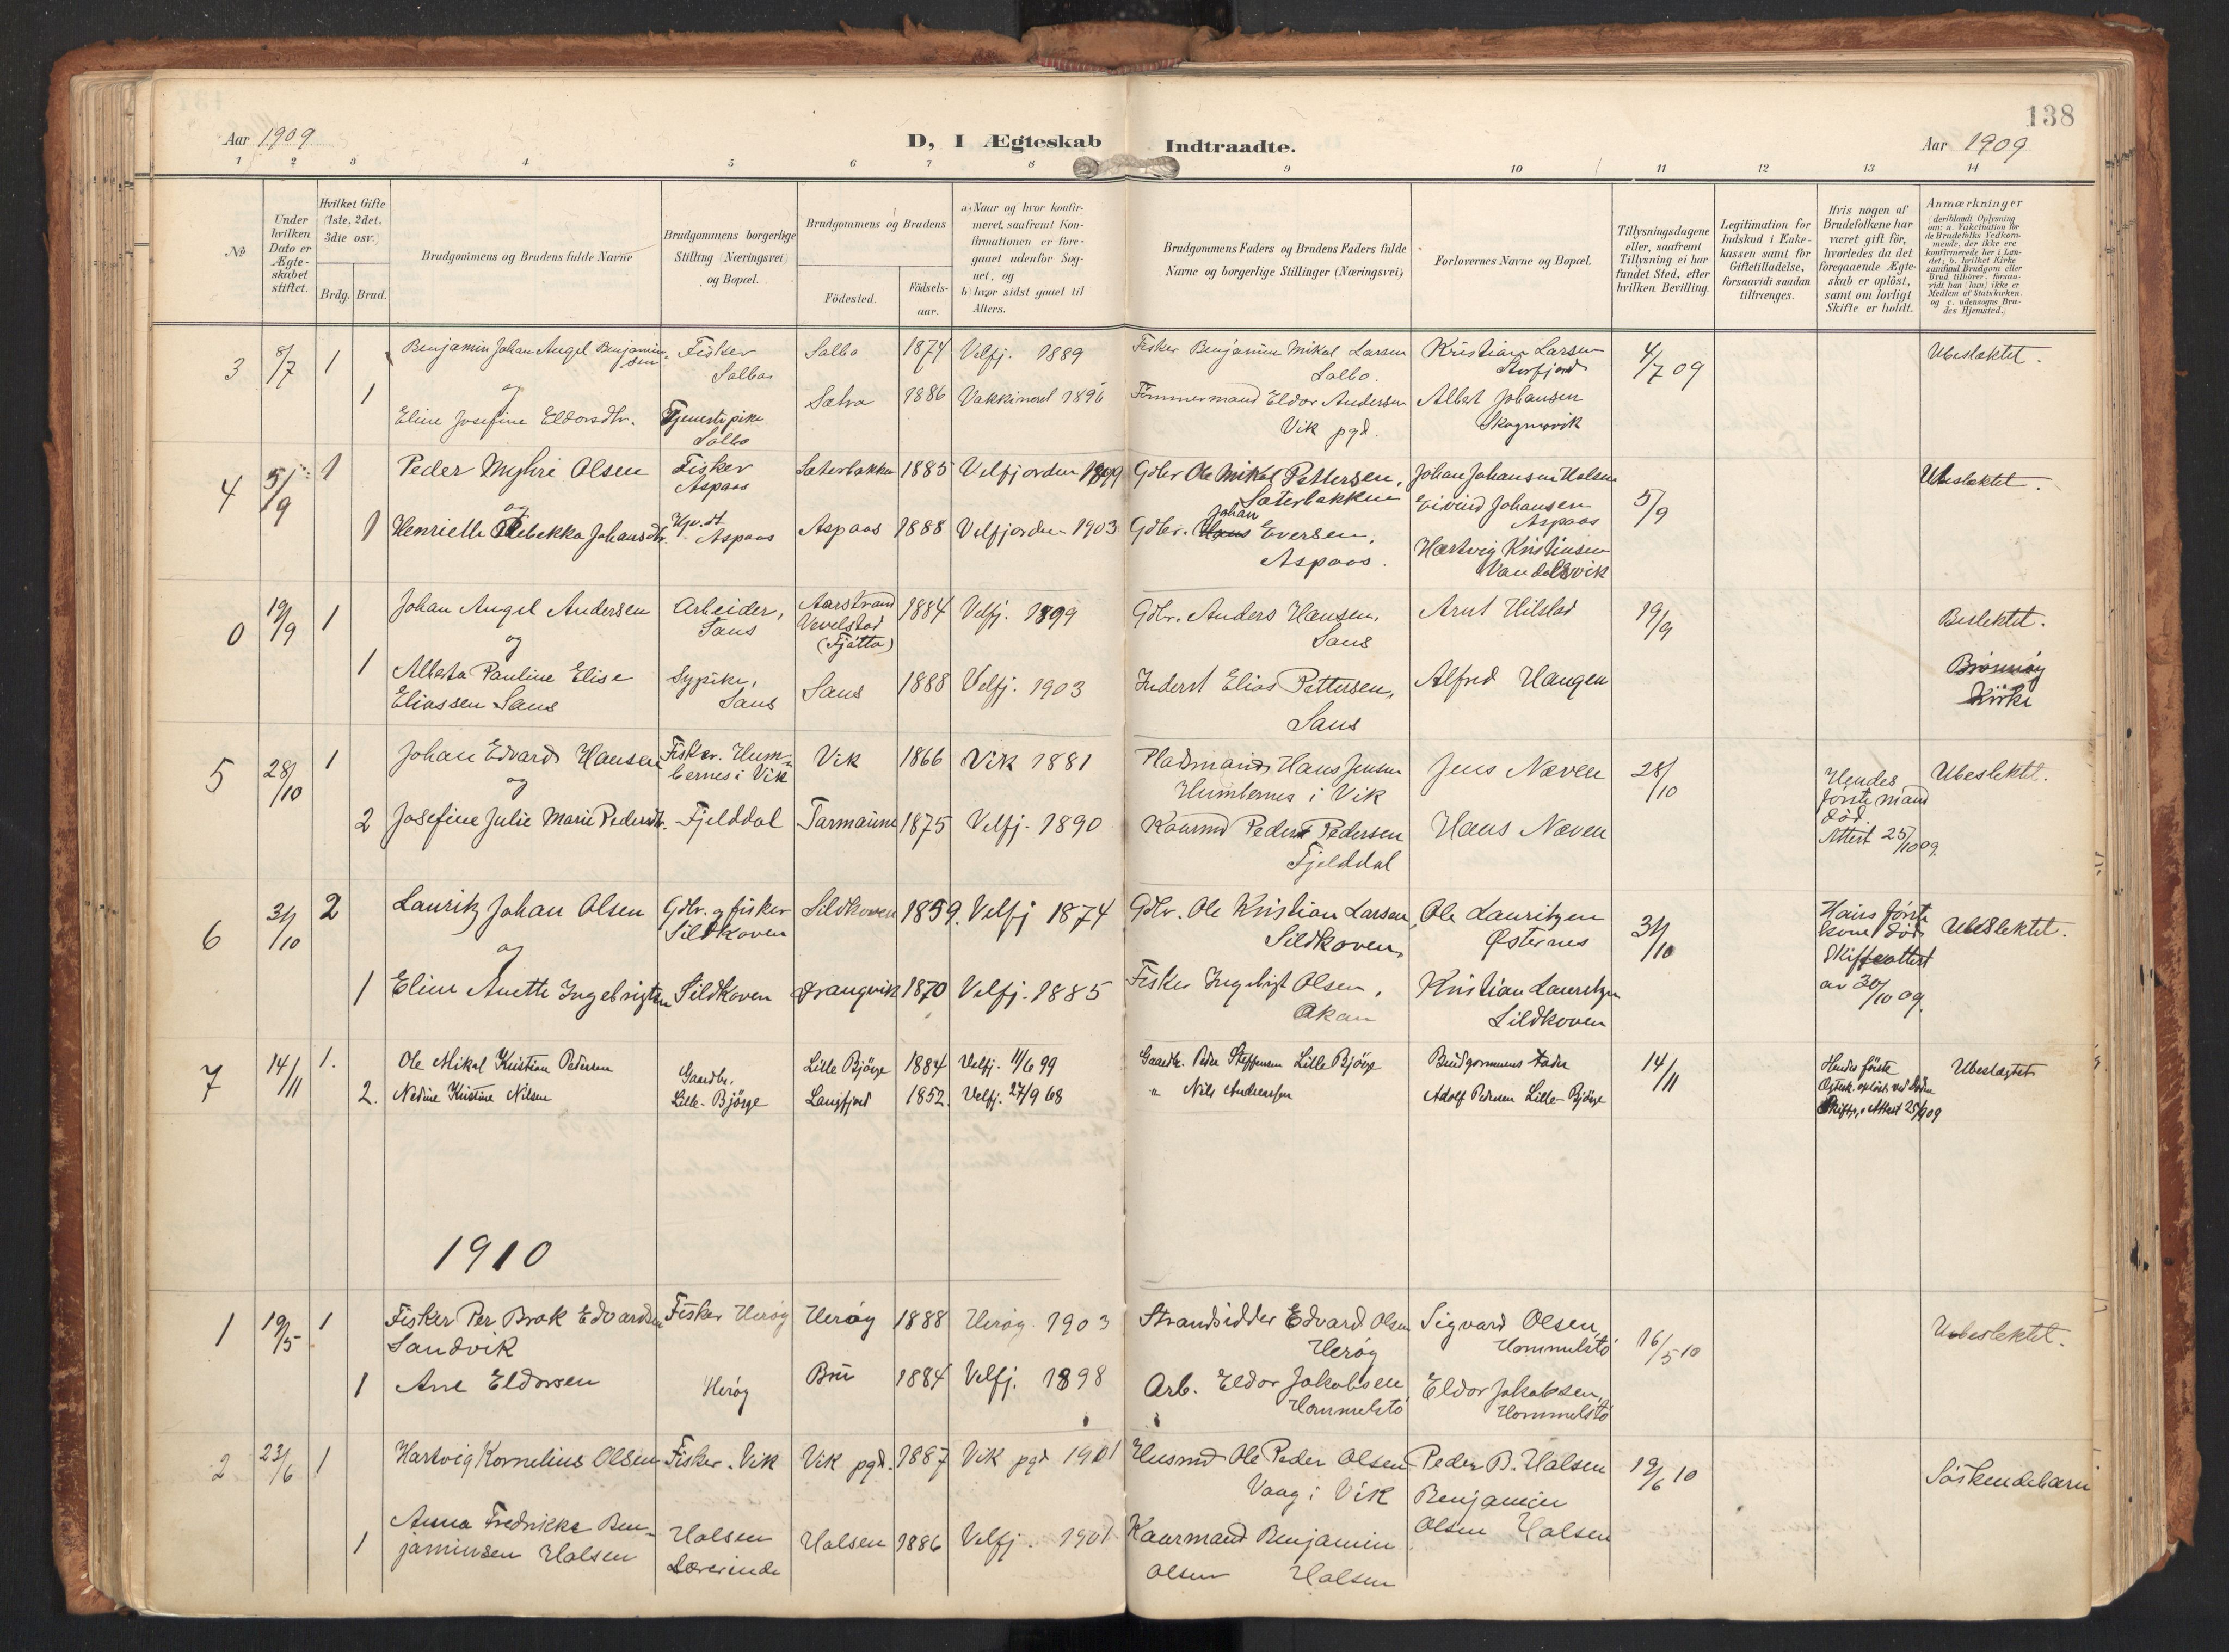 138
Aar 1909
D, I Ægteskab Indtraadte.
Aar 1909
1 2 3 4 5 6 7 8 9 10 11 12 13 14
No
Under hvilken Dato er Ægteskabet stiftet.
Hvilket Gifte (1ste, 2det, 3die osv.)
Brdg. Brud.
Brudgommens og Brudens fulde Navne
Brudgommens borgerlige Stilling (Næringsvei) og Bopæl.
Brudgommens og Brudens
Fødested.
Fødselsaar.
a) Naar og hvor konfirmeret, saafremt Konfirmationen er foregaaet udenfor Sognet, og
b) hvor sidst gaaet til Alters.
Brudgommens Faders og Brudens Faders fulde Navne og borgerlige Stillinger (Næringsvei)
Forlovernes Navne og Bopæl.
Tillysningsdagene eller, saafremt Tillysning ei har fundet Sted, efter hvilken Bevilling.
Legitimation for Indskud i Enkekassen samt for Giftetilladelse, forsaavidt saadan tiltrænges.
Hvis nogen af Brudefolkene har været gift før, hvorledes da det foregaaende Ægteskab er opløst, samt om lovligt Skifte er holdt.
Anmærkninger
(deriblandt Oplysning om: a. Vakcination for de Brudefolks Vedkommende, der ikke ere konfirmerede her i Landet; b. hvilket Kirkesamfund Brudgom eller Brud tilhører, forsaavidt han (hun) ikke er Medlem af Statskirken, og c. udensogns Brudes Hjemsted.)
3 8/7 1 Benjamin Johan Angel Benjaminsen Fisker Salbo Salbo 1874 Velfj. 1889 Fisker Benjamin Mikal Larsen Salbo. Kristian Larsen Storfjord 4/7 09 Ubeslektet.
og
1 Eline Josefine Eldorsdtr. Tjenestepike Salbo Salva 1886 Vakkineret 1896 Tømmermand Eldor Andersen Vik pgd. Albert Johansen Skogmovik
4 5/9 1 Peder Myhre Olsen Fisker Aspaas Sæterbakken 1885 Velfjorden 1899 Gdbr Ole Mikal Pettersen, Sæterbakken Johan Johansen Halsen 5/9 Ubeslektet.
og
Eivind Johansen Aspaas
1 Henriette Rebekka Johansdtr. Hjv. dt Aspaas Aspaas 1888 Velfjorden 1903 Gdbr. Johan Eversen, Aspaas. Hartvig Kristiansen Vandalsvik
0 19/9 1 Johan Angel Andersen Arbeider, Saus Aarstrand Vevelstad (Tjøtta) 1884 Velfj. 1899 Gdbr. Anders Hansen, Saus Arnt Hilstad 19/9 Beslektet.
og
1 Alberta Pauline Elise Eliassen Saus Sypike, Saus Saus 1888 Velfj. 1903 Inderst Elias Pettersen, Saus Alfred Haugen Brønnøy Kirke
5 28/10 1 Johan Edvard Hansen Fisker. Humbernes i Vik Vik 1866 Vik 1881 Pladsmand Hans Jensen Humbernes i Vik Jens Næven 28/10 Hendes første mand død. Attest 25/10 09. Ubeslektet.
og
2 Josefine Julie Marie Pedersdtr. Fjelddal Tarmaunet 1875 Velfj. 1890 Kaarmd Peder Pedersen Fjelddal Hans Næven
6 31/10 2 Lauritz Johan Olsen Gdbr. og fisker Sildkoven Sildkoven 1859. Velfj 1874 Gdbr. Ole Kristian Larsen, Sildkoven. Ole Lauritzen Østernes 31/10 Hans første kone død, Skifteattest av 30/10 09. Ubeslektet.
og
1 Eline Anette Ingebrigtsen Sildkoven Strangvik 1870 Velfj. 1885 Fisker Ingebrigt Olsen, Okan Kristian Lauritzen Sildkoven
7 14/11 1. Ole Mikal Kristian Pedersen Gaardbr. Lille-Bjørge Lille Bjørge 1884 Velfj. 11/6 99 Gaardbr. Peder Steffensen Lille Bjørge Brudgommens Fader 14/11 Hendes første Ægtesk. opløst ved Døden Skifte, Attest 25/9 09 Ubeslægtet
2. Nedine Kristine Nilsen Langfjord 1852. Velfj. 27/9 68 " Nils Andreassen Adolf Pedersen Lille-Bjørge
1910
1 19/5 1 Fisker Per Brok Edvardsen Sandvik Fisker Herøy Herøy 1888 Herøy. 1903 Strandsidder Edvard Olsen Herøy Sigvard Olsen, Hommelstø 16/5 10 Ubeslektet.
1 Ane Eldorsen Herøy Bru 1884 Velfj. 1898 Arb. Eldor Jakobsen Hommelstø Eldor Jakobsen, Hommelstø
2 23/6 1 Hartvig Kornelius Olsen Fisker. Vik Vik pgd. 1887 Vik pgd 1901 Husmd Ole Peder Olsen Vaag i Vik Peder B. Halsen 19/6 10 Søskendebarn
1 Anna Fredrikke Benjaminsen Halsen Halsen Lærerinde Halsen 1886 Velfj. 1901 Kaarmand Benjamin Olsen Halsen Benjamin Olsen Halsen